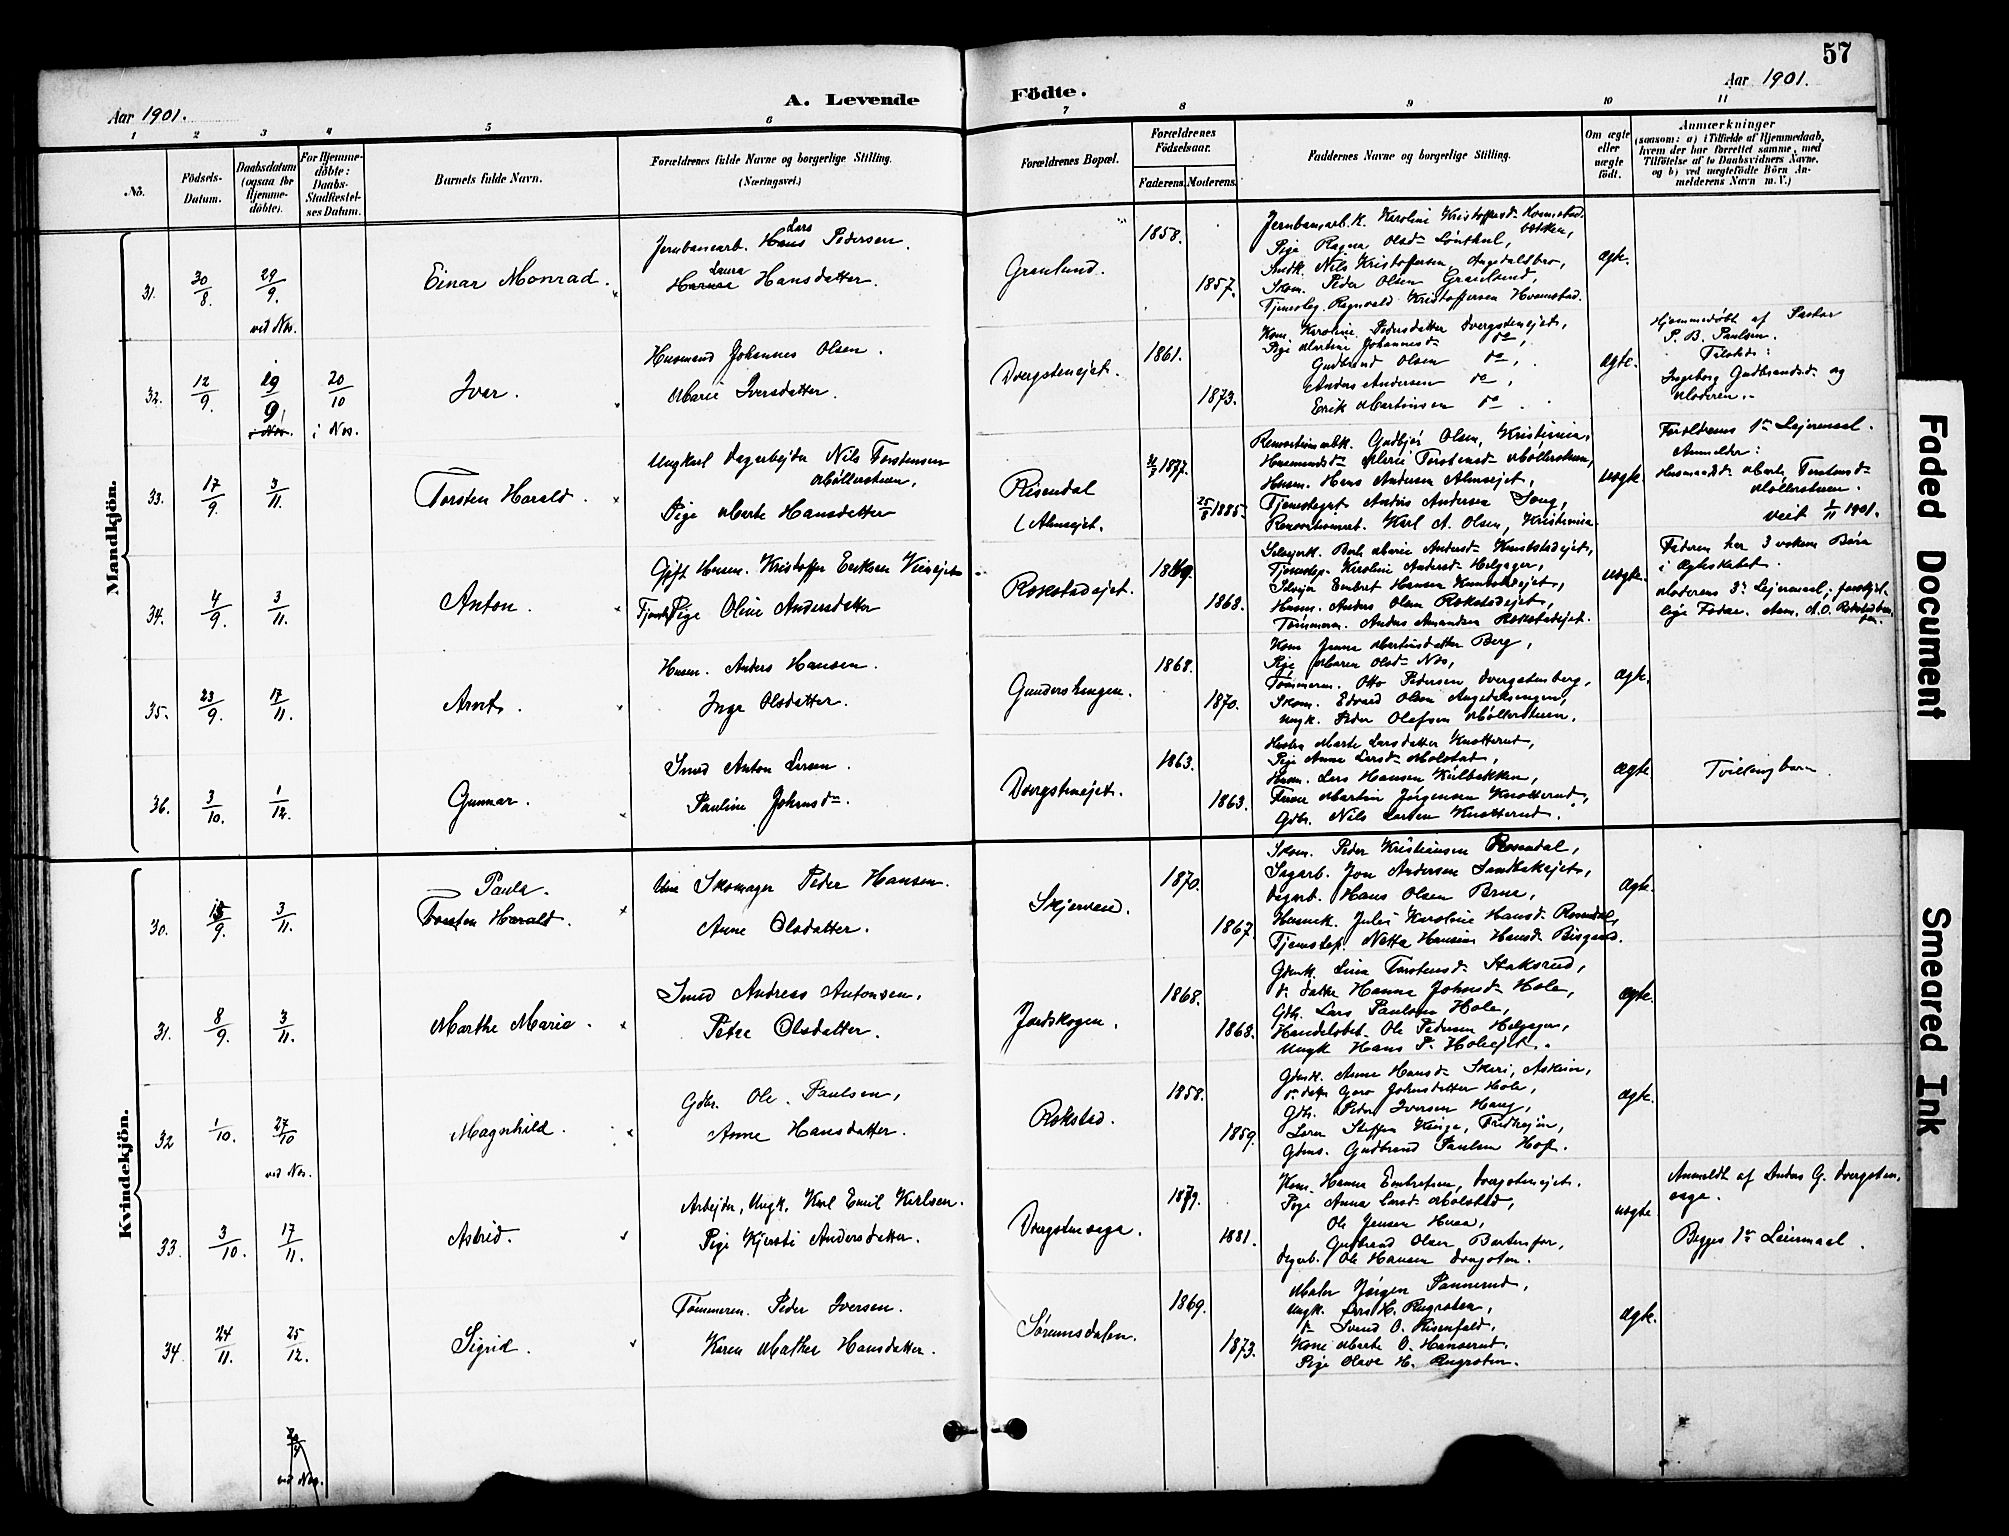 57
Aar 1901.
A. Levende
Födte.
Aar 1901.
1 2 3 4 5 6 7 8 9 10 11
No.
Födsels-Datum.
Daabsdatum (ogsaa for Hjemmedöbte).
For Hjemmedöbte: Daabs-Stadfæstelses Datum.
Barnets fulde Navn.
Forældrenes fulde Navne og borgerlige Stilling.
(Næringsvei.)
Forældrenes Bopæl.
Forældrenes Födselsaar.
Faderens. Moderens.
Faddernes Navne og borgerlige Stilling.
Om ægte eller uægte födt.
Anmærkninger
(saasom: a) i Tilfælde af Hjemmedaab, hvem der har forrettet samme, med Tilföielse af to Daabsvidners Navne, og b) ved uægtefödte Börn Anmelderens Navn m. V.)
Mandkjön.
31. 30/8. 29/9. ved Nos.
Einar Monrad.
Jernbanearb. Hans Lars Pedersen.
Laura Hansdatter.
Granlund.
1858.
1857.
Pige Ragna Olsd-
Smdk. Nils Kristoffersen
Skom. Peder Olsen Granlund,
Tjenesteg. Ragnvald Kristoffersen Hvamstad.
ægte.
32. 12/9. 29/9 i Nos. 20/10 i Nos.
Ivar.
Husmand Johannes Olsen.
Marie Iversdatter.
Dvergstenejet.
1861.
1873.
Kone Karoline Pedersdatter Dvergstenejet,
Pige Martine Johannesd- do,
Gudbrand Olsen do,
Anders Andersen do,
Erik Martinsen do.
ægte.
Hjemmedøbt af Pastor
P. B. Paulsen.
Tilstede:
Ingeborg Gudbrandsd- og
Moderen.
33. 17/9. 3/11.
Torsten Harald.
Ungkarl Dagarbejder Nils Torstensen
Møllerstuen,
Pige Marte Hansdatter
Risendal
(Almsejet.
1877.
1885.
Gudbjør Olsen, Kristiania,
Husmandsd- Marie Torstensd- Møllerstuen,
Husm. Hans Andersen Almsejet,
Tjenestegut Anders Andersen
Karl A. Olsen, Kristiania.
uægte.
Forældrenes 1ste Lejermaal.
Anmelder:
Husmandsd- Marte Torstensd-
Møllerstuen.
1/11 1901.
34. 4/9. 3/11.
Anton.
Gift Husm. Kristoffer Eriksen Vienejet
Tjenestepige Oline Andersdatter
Rokstadejet.
1869.
1868.
Marie Andersd-
Tjenestep. Karoline Andersd- Helgager,
Embret Hansen
Husm. Anders Olsen Rokstadejet,
Tømmerm. Anders Amundsen Rokstadejet.
uægte.
Faderen har 3 voksne Børn
i Ægteskabet.
Moderens 3die Lejermaal; forskjel-
lige Fædre. Anm. A. O. Rokstad
35. 23/9. 17/11.
Arnt.
Husm. Anders Hansen.
Inga Olsdatter.
Gundershagen.
1868.
1870.
Kone Jenny Martinsdatter Berg,
Pige Maren Olsd- Nos,
Tømmerm. Otto Pedersen Dvergstenberg,
Skom. Edvard Olsen Angedalsengen,
Ungk. Peder Olafsen Møllerstuen.
ægte.
36. 3/10. 1/12.
Gunnar.
Smed Anton Larsen.
Pauline Johansd-.
Dvergstenejet.
1863.
1863.
Hustru Marte Larsdatter Knotterud,
Pige Anne Larsd- Molstad,
Husm. Lars Hansen Kulbakken,
Farver Martin Jørgensen Knotterud,
Gdbr. Nils Larsen Knotterud.
ægte
Tvillingbarn.
Kvindekjön.
30. 15/9. 3/11.
Paula.
Torsten Harald.
Skomager Peder Hansen.
Anne Olsdatter.
Skjerven.
1870.
1867.
Skom. Peder Kristiansen Rosendal,
Sagarb. Jon Andersen Sandbakejet,
Dagarb. Hans Olsen Brua,
Husmk. Julie Karoline Hansd- Rosendal,
Tjenestep. Netta Hansine Hansd-
ægte.
31. 8/9. 3/11.
Marthe Marie.
Smed Andreas Antonsen.
Petra Olsdatter.
Jordskogen.
1868.
1868.
Gdmk. Lina Torstensd- Staksrud,
d- datter Hanna Johnsd- Hole,
Gdb. Lars Paulsen Hole,
Handelsbet. Ole Pedersen Helgager,
Ungk Hans P. Holeejet.
ægte.
32 1/10. 27/10 ved Nos.
Magnhild.
Gdbr. Ole Paulsen,
Anne Hansdatter.
Rokstad.
1858.
1859.
Gdmk. Anne Hansd- Skari, Askim,
Goro Johnsdatter Hole,
Gdb. Peder Iversen Haug,
Lærer Steffen Kinge, Fredheim,
Gdms. Gudbrand Paulsen Hoff.
ægte.
33. 3/10. 17/11.
Astrid.
Arbejder, Ungk. Karl Emil Karlsen.
Pige Kjersti Andersdatter.
Dvergstensaga.
1879.
1881.
Kone Hanna Embretsen, Dvergstenejet.
Pige Anna Larsd- Molstad,
Ole Jensen Hvaa,
Gudbrand Olsen
Dagarb. Ole Hansen Dvergsten.
uægte
Anmeldt af Anders G. Dvergsten-
saga.
Begges 1ste Leiermaal.
34. 24/11. 25/12.
Sigrid.
Tømmerm. Peder Iversen.
Karen Mathea Hansdatter.
Sørumsdalen.
1869.
1873.
Maler Jørgen Pannerud,
Ungk. Lars H. Rugroten,
d- Svend O. Risenfald.
Kone Marte O. Hanserud.
Pige Olava H. Rugroten.
ægte.
ved Nos.
Faded Document
Smeared Ink